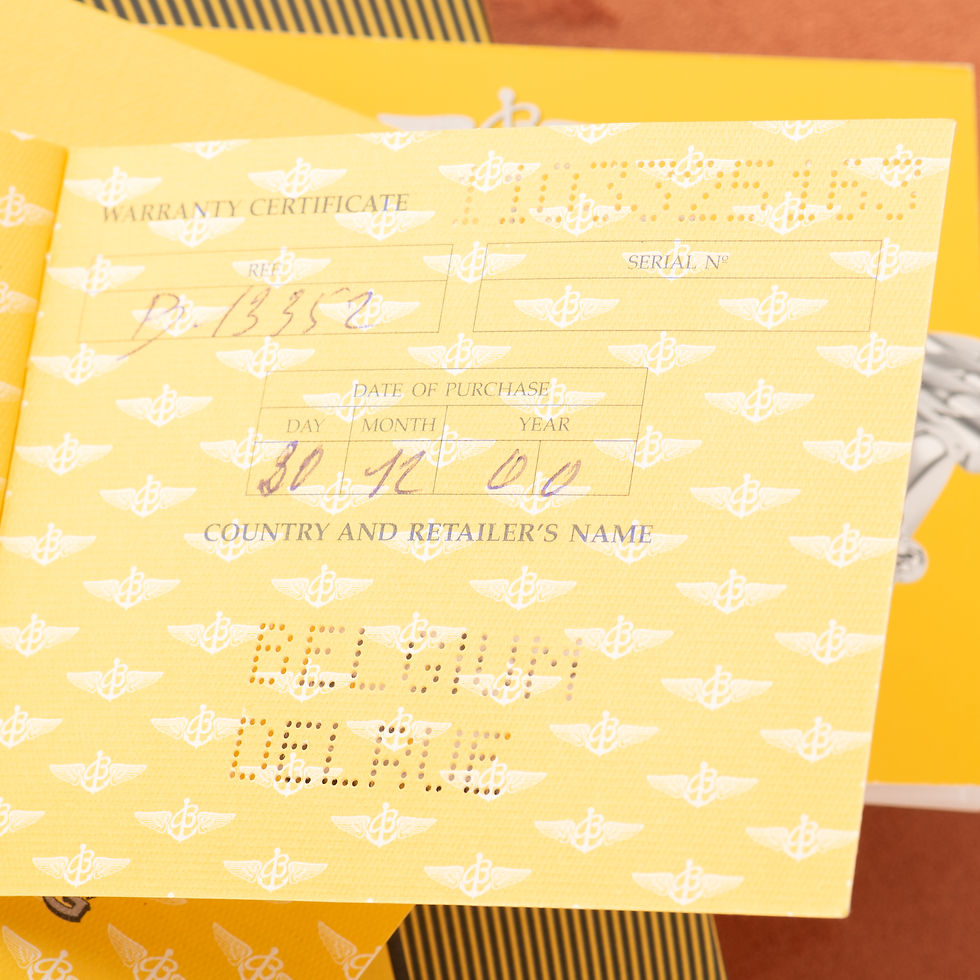 WARRANTY CERTIFICATE
REF.
SERIAL Nº
DATE OF PURCHASE
DAY MONTH YEAR
30 12 00
COUNTRY AND RETAILER'S NAME
BELGIUM